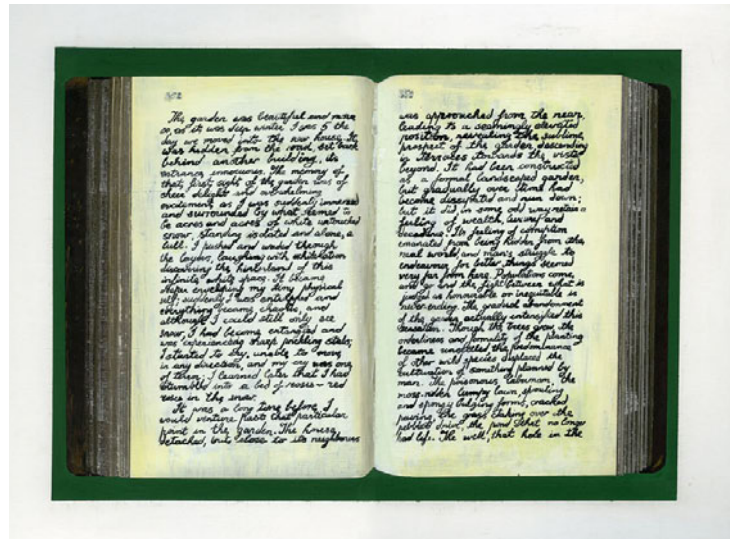 The garden was beautiful and more
so, as it was deep winter. I was 5 the
day we moved into the new house. It
was hidden from the road, set back
behind another building, its
entrance innocuous. The memory of
that first sight of the garden was of
sheer delight and overwhelming
excitement as I was suddenly immersed
and surrounded by what seemed to
be acres and acres of white untouched
snow, standing isolated and alone, a
lull. I pushed and waded through
the layers, laughing with exhilaration
discovering the hinterland of this
infinite white space. It became
deeper enveloping my tiny physical
self; suddenly I was and
everything became chaotic, and
although I could still only see
snow, I had become entangled and
was experiencing sharp prickling stabs;
I started to cry, unable to move
in any direction, and my cry was one
of terror; I learned later that I had
stumbled into a bed of roses – red
rose in the snow.
It was a long time before I
would venture past that particular
point in the garden. The house,
detached, but close to its neighbours
was approached from the rear,
leading to a seemingly elevated
position, revealing the sublime
prospect of the garden descending
in terraces towards the vista
beyond. It had been constructed
as a formal landscaped garden,
but gradually over time had
become and run down;
but it did, in some odd way retain a
feeling of wealth, luxury and
decadence. Its feeling of corruption
emanated from being hidden from the
real world, and man's struggle to
endeavour for better things seemed
very far from here. Populations come,
and go and the fight between what is
judged as honourable or inequitable is
never-ending. The gradual abandonment
of the garden actually intensified this
sensation. Though the trees grew, the
orderliness and formality of the planting
became unsettled the predominance
of other wild species displaced the
cultivation of something planned by
man. The poisonous laburnum, the
moss-ridden lumpy lawn, sprouting
and spongy bulging forms, cracked
paving, the grass taking over the
pebbled drive, the pond that no longer
had life. The well, that hole in the